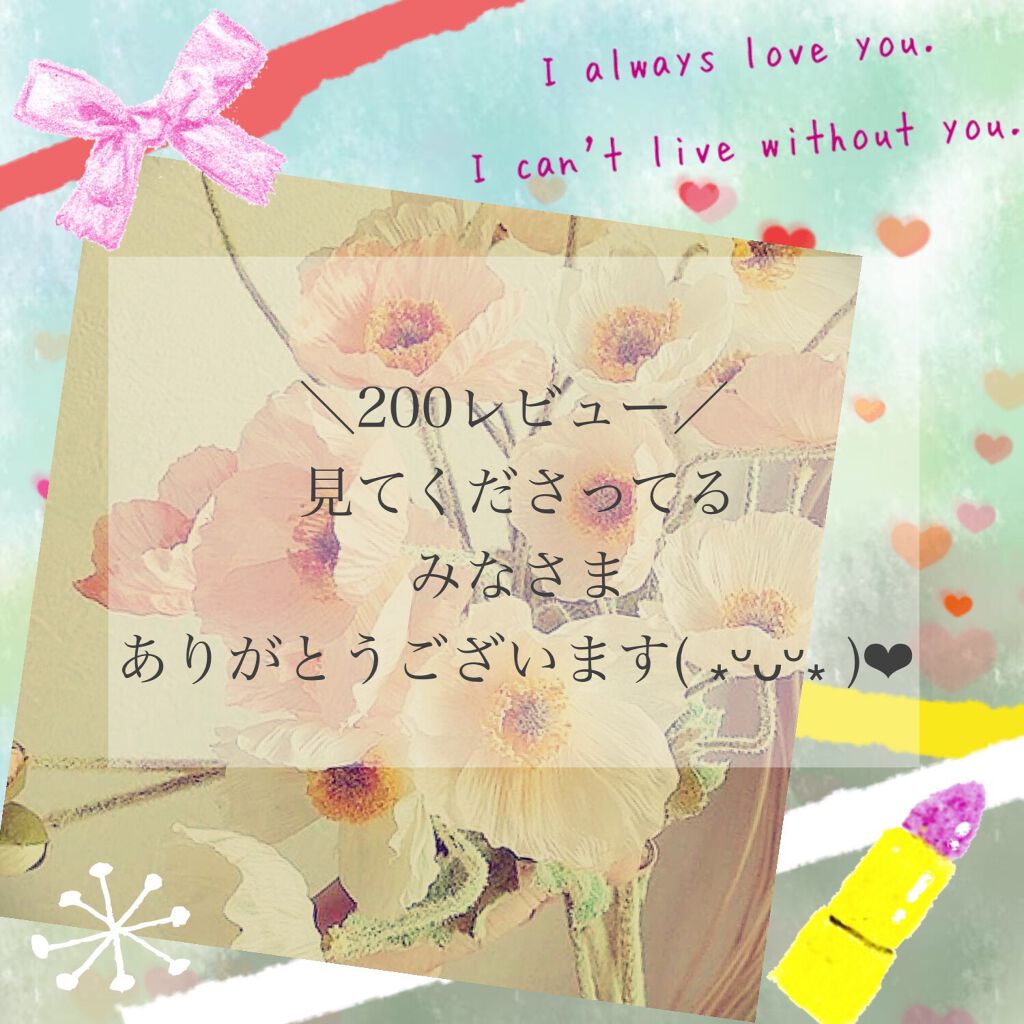 I always love you.
I can't live without you.
＼200レビュー／
見てくださってる
みなさま
ありがとうございます( ⁎ᵕᴗᵕ⁎ )❤